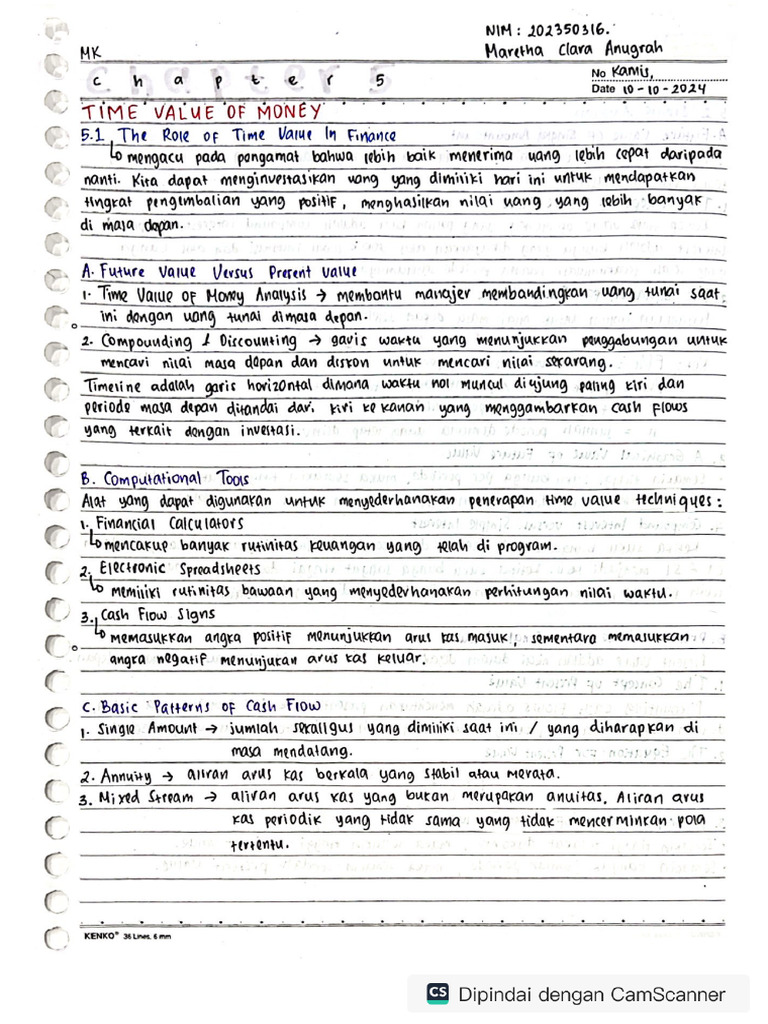 NIM : 202350316.
Maretha Clara Anugrah
MK
Chapter 5
No Kamis,
Date 10-10-2024
TIME VALUE OF MONEY
5.1 The Role of Time Value In Finance
↳ mengacu pada pengamat bahwa lebih baik menerima uang lebih cepat daripada
nanti. Kita dapat menginvestasikan uang yang dimiliki hari ini untuk mendapatkan
tingkat pengembalian yang positif, menghasilkan nilai uang yang lebih banyak
di masa depan.
A. Future Value Versus Present Value
1. Time Value of Money Analysis → membantu manajer membandingkan uang tunai saat
ini dengan uang tunai dimasa depan.
2. Compounding & Discounting → garis waktu yang menunjukkan penggabungan untuk
mencari nilai masa depan dan diskon untuk mencari nilai sekarang.
Timeline adalah garis horizontal dimana waktu nol muncul diujung paling kiri dan
periode masa depan ditandai dari kiri ke kanan yang menggambarkan cash flows
yang terkait dengan investasi.
B. Computational Tools
Alat yang dapat digunakan untuk menyederhanakan penerapan time value techniques :
1. Financial Calculators
↳ mencakup banyak rutinitas keuangan yang telah di program.
2. Electronic Spreadsheets
↳ memiliki rutinitas bawaan yang menyederhanakan perhitungan nilai waktu.
3. Cash Flow Signs
↳ memasukkan angka positif menunjukkan arus kas masuk, sementara memasukkan
angka negatif menunjukan arus kas keluar.
C. Basic Patterns of Cash Flow
1. Single Amount → jumlah sekaligus yang dimiliki saat ini / yang diharapkan di
masa mendatang.
2. Annuity → aliran arus kas berkala yang stabil atau merata.
3. Mixed Stream → aliran arus kas yang bukan merupakan anuitas. Aliran arus
kas periodik yang tidak sama yang tidak mencerminkan pola
tertentu.
KENKO® 36 Lines, 6 mm
CS Dipindai dengan CamScanner